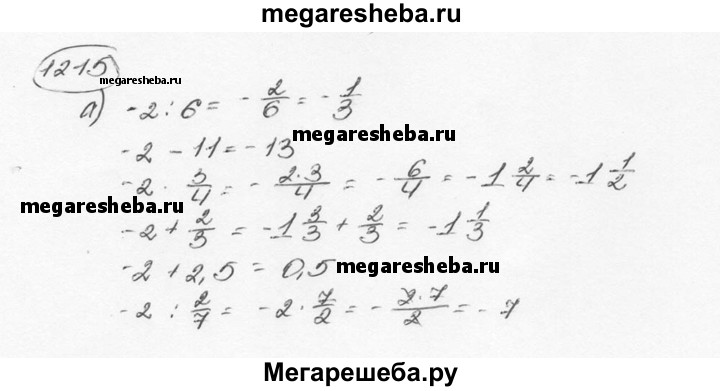 megaresheba.ru
1215
megaresheba.ru
а) -2 : 6 = - 2/6 = - 1/3
megaresheba.ru
-2 - 11 = -13
-2 · 3/4 = - 2·3/4 = - 6/4 = -1 2/4 = -1 1/2
megaresheba.ru
-2 + 2/3 = -1 3/3 + 2/3 = -1 1/3
-2 + 2,5 = 0,5
megaresheba.ru
-2 : 2/7 = -2 · 7/2 = - 2·7/2 = -7
Мегарешеба.ру